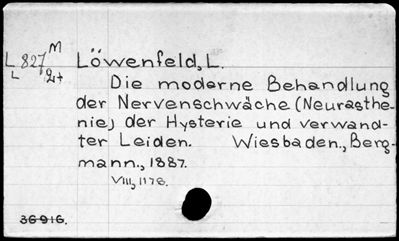 L 827 M
L 2t
Löwenfeld, L.
Die moderne Behandlung
der Nervenschwäche (Neurasthe-
nie) der Hysterie und verwand-
ter Leiden. Wiesbaden., Berg-
mann., 1887.
VIII, 117 S.
36916.